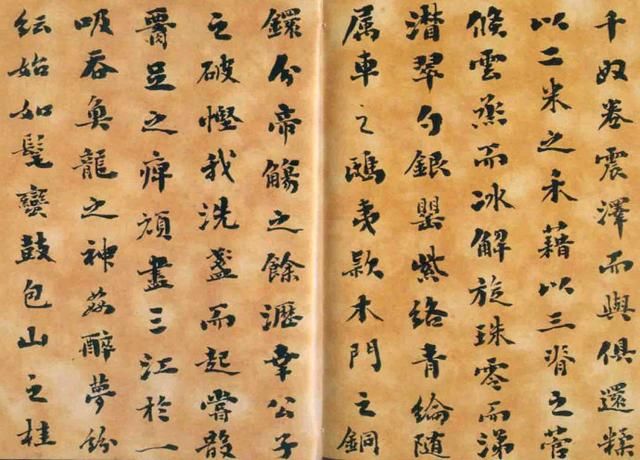 千奴卷震澤而與俱還糅
以二米之禾藉以三脊之菅
倏雲蒸而冰解旋珠零而涕
潸翠勺銀罌紫絡青綸隨
属車之鴟夷款木門之銅
鐶分帝觴之餘瀝幸公子
之破慳我洗盞而起嘗散
腰足之痹頑盡三江於一
吸吞魚龍之神姦醉夢紛
紜始如髦蠻鼓包山之桂